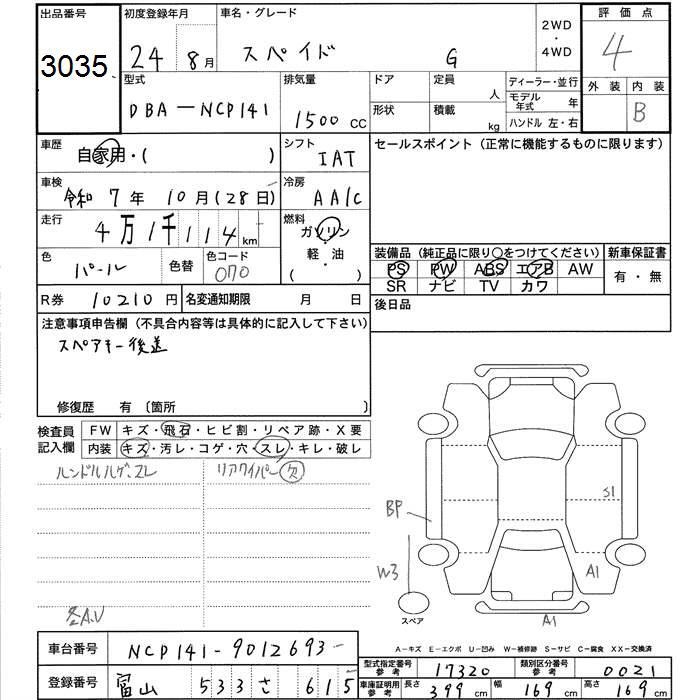 出品番号 初度登録年月 車名・グレード 2WD・4WD 評価点
3035 24 8月 スペイド G 4
型式 排気量 ドア 定員 人 ディーラー・並行 外装 内装
DBA-NCP141 1500 CC 形状 積載 kg モデル年式 年 B
ハンドル 左・右
車歴 自家用・( ) シフト IAT セールスポイント(正常に機能するものに限ります)
車検 令和 7年 10月(28日) 冷房 AA/C
走行 4万1千114km 燃料 ガソリン・軽油・( )
色 パール 色替 色コード 070
装備品(純正品に限り○をつけてください) 新車保証書
PS PW ABS エアB AW 有・無
SR ナビ TV カワ
R券 10210円 名変通知期限 月 日 後日品
注意事項申告欄(不具合内容等は具体的に記入して下さい)
スペアキー後送
修復歴 有 〔箇所 〕
検査員記入欄 FW キズ・飛石・ヒビ割・リペア跡・X要
内装 キズ・汚レ・コゲ・穴・スレ・キレ・破レ
ハンドルハゲ、スレ リアワイパー欠
各A.U
BP
S1
W3
A1
スペア
A1
A-キズ E-エクボ U-凹み W-補修跡 S-サビ C-腐食 XX-交換済
車台番号 NCP141-9012693
型式指定番号参考 17320 類別区分番号参考 0021
登録番号 富山 533 さ 615
車庫証明用参考 長さ 399cm 幅 169cm 高さ 169cm